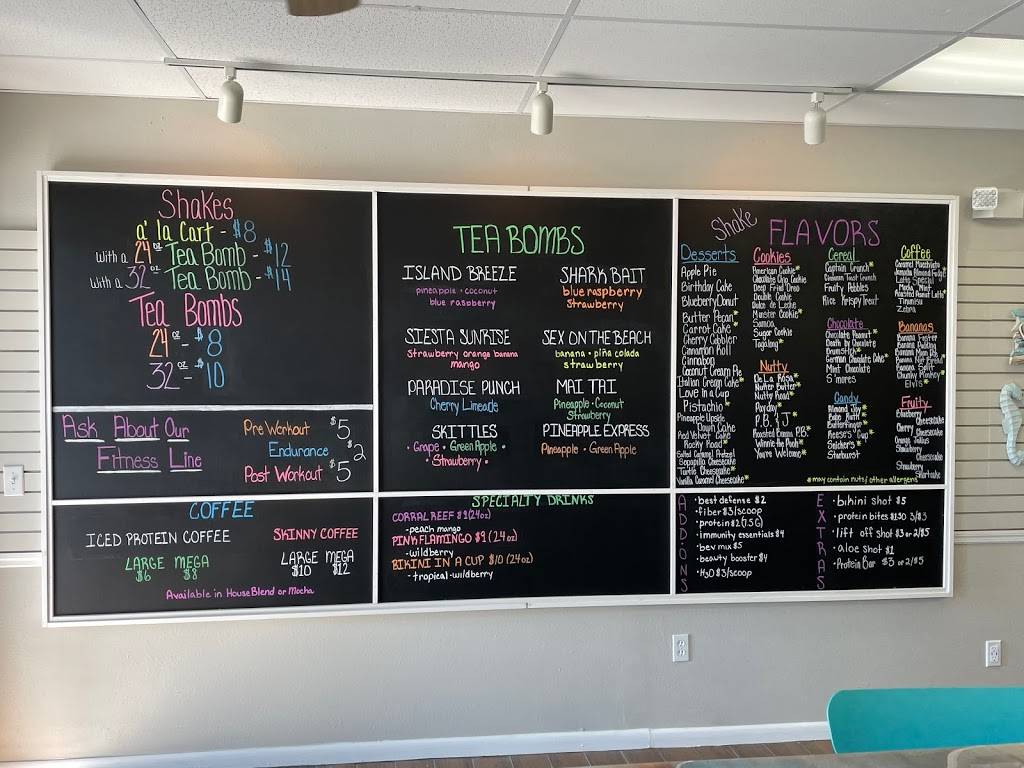 Shakes
a' la Cart - $8
With a 24 oz Tea Bomb - $12
With a 32 oz Tea Bomb - $14
Tea Bombs
24 oz - $8
32 oz - $10
Ask About Our
Fitness Line
Pre Workout $5
Endurance $2
Post Workout $5
COFFEE
ICED PROTEIN COFFEE
LARGE MEGA
$6 $8
SKINNY COFFEE
LARGE MEGA
$10 $12
Available in House Blend or Mocha
TEA BOMBS
ISLAND BREEZE
pineapple • coconut
blue raspberry
SHARK BAIT
blue raspberry
Strawberry
SIESTA SUNRISE
Strawberry orange banana
mango
SEX ON THE BEACH
banana • piña colada
strawberry
PARADISE PUNCH
Cherry Limeade
MAI TAI
Pineapple • Coconut
Strawberry
SKITTLES
• Grape • Green Apple •
• Strawberry •
PINEAPPLE EXPRESS
Pineapple • Green Apple
SPECIALTY DRINKS
CORAL REEF $9 (24oz)
-peach mango
PINK FLAMINGO $9 (24oz)
-wildberry
BIKINI IN A CUP $10 (24oz)
-tropical-wildberry
Shake FLAVORS
Desserts
Apple Pie
Birthday Cake
Blueberry Donut
Butter Pecan*
Carrot Cake*
Cherry Cobbler
Cinnamon Roll
Cinnabon
Coconut Cream Pie
Italian Cream Cake*
Love In a Cup
Pistachio*
Pineapple Upside
Down Cake
Red Velvet Cake*
Rocky Road*
Salted Caramel Pretzel
Sopapilla Cheesecake
Turtle Cheesecake*
Vanilla Caramel Cheesecake*
Cookies
American Cookie*
Chocolate Chip Cookie
Deep Fried Oreo
Double Cookie
Dulce de Leche
Monster Cookie*
Samoa
Sugar Cookie
Tagalong*
Nutty
De La Rosa*
Nutter Butter*
Nutty Road*
Payday*
P.B. & J*
Roasted P.B.
Winnie the Pooh*
You're Welcome*
Cereal
Captain Crunch*
Cinnamon Toast Crunch
Fruity Pebbles
Rice Krispy Treat
Chocolate
Chocolate Peanut*
Death by Chocolate
Drumstick*
German Chocolate Cake*
Mint Chocolate
S'mores
Candy
Almond Joy*
Butterfinger*
Reeses' Cup*
Snickers*
Starburst
Coffee
Caramel Macchiato
Mocha Mint
Tiramisu
Zebra
Bananas
Banana Foster
Banana Pudding
Banana Split
Chunky Monkey*
Elvis*
Fruity
Blueberry
Cheesecake
Cherry
Cheesecake
Orange Julius
Strawberry
Cheesecake
Strawberry
Shortcake
*may contain nuts/other allergens
ADD ONS
• best defense $2
• fiber $3/scoop
• protein $2 (7.5G)
• immunity essentials $4
• bev mix $5
• beauty booster $4
• H2O $3/scoop
EXTRAS
• bikini shot $5
• protein bites $1.50 3/$3
• lift off shot $3 or 2/$5
• aloe shot $1
• Protein Bar $3 or 2/$5